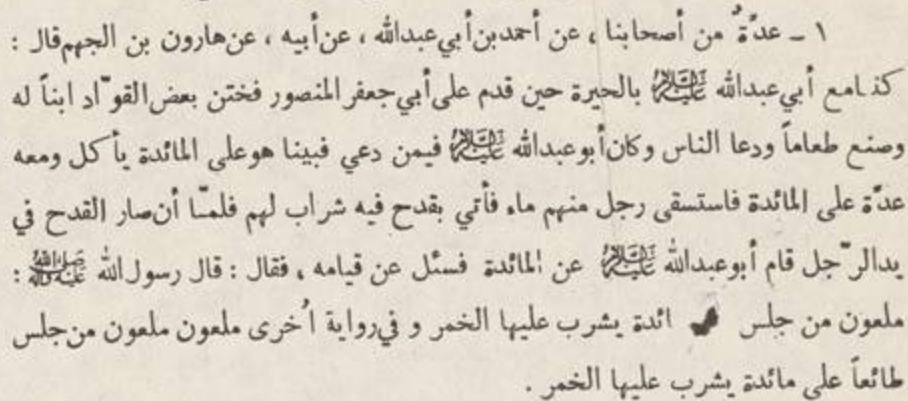 ١ ـ عدَّةٌ من أصحابنا ، عن أحمد بن أبي عبدالله ، عن أبيه ، عن هارون بن الجهم قال :
كنـا مع أبي عبدالله عليه السلام بالحيرة حين قدم على أبي جعفر المنصور فختن بعض القوّاد ابناً له
وصنع طعاماً ودعا الناس وكان أبو عبدالله عليه السلام فيمن دعي فبينا هو على المائدة يأكل ومعه
عدَّة على المائدة فاستسقى رجل منهم ماء فأتي بقدح فيه شراب لهم فلمّا أن صار القدح في
يد الرَّجل قام أبو عبدالله عليه السلام عن المائدة فسئل عن قيامه ، فقال : قال رسول الله صلى الله عليه وآله :
ملعون من جلس ائدة يشرب عليها الخمر و في رواية اُخرى ملعون ملعون من جلس
طائعاً على مائدة يشرب عليها الخمر .